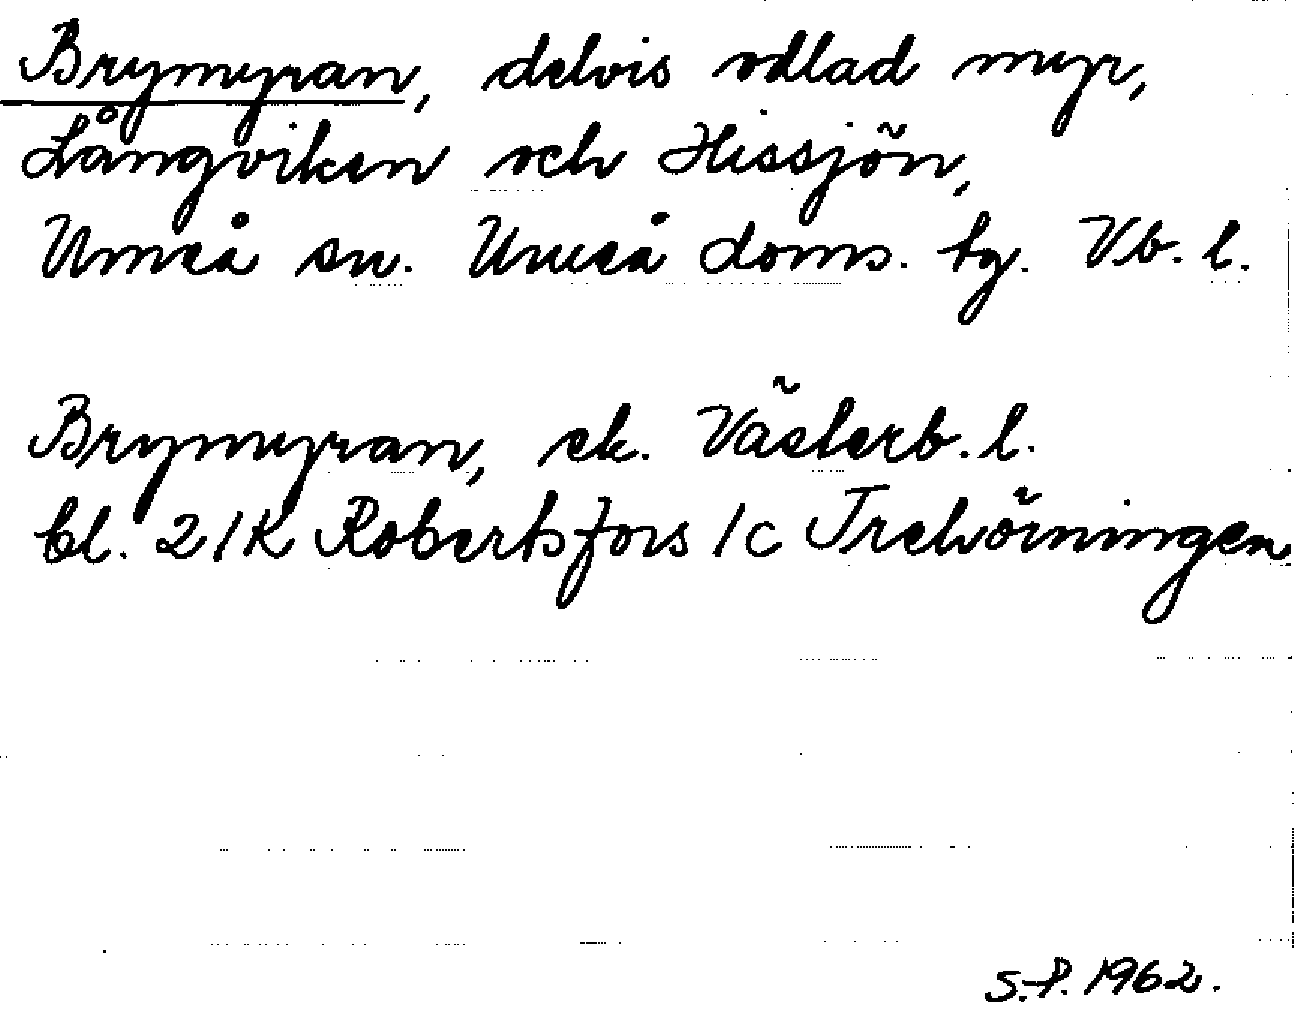 Brymyran, delvis odlad myr,
Långviken och Hissjön,
Umeå sn. Umeå doms. tg. Vb. l.
Brymyran, ek. Västerb. l.
bl. 21K Robertsfors 1c Trehörningen
S.P. 1962.